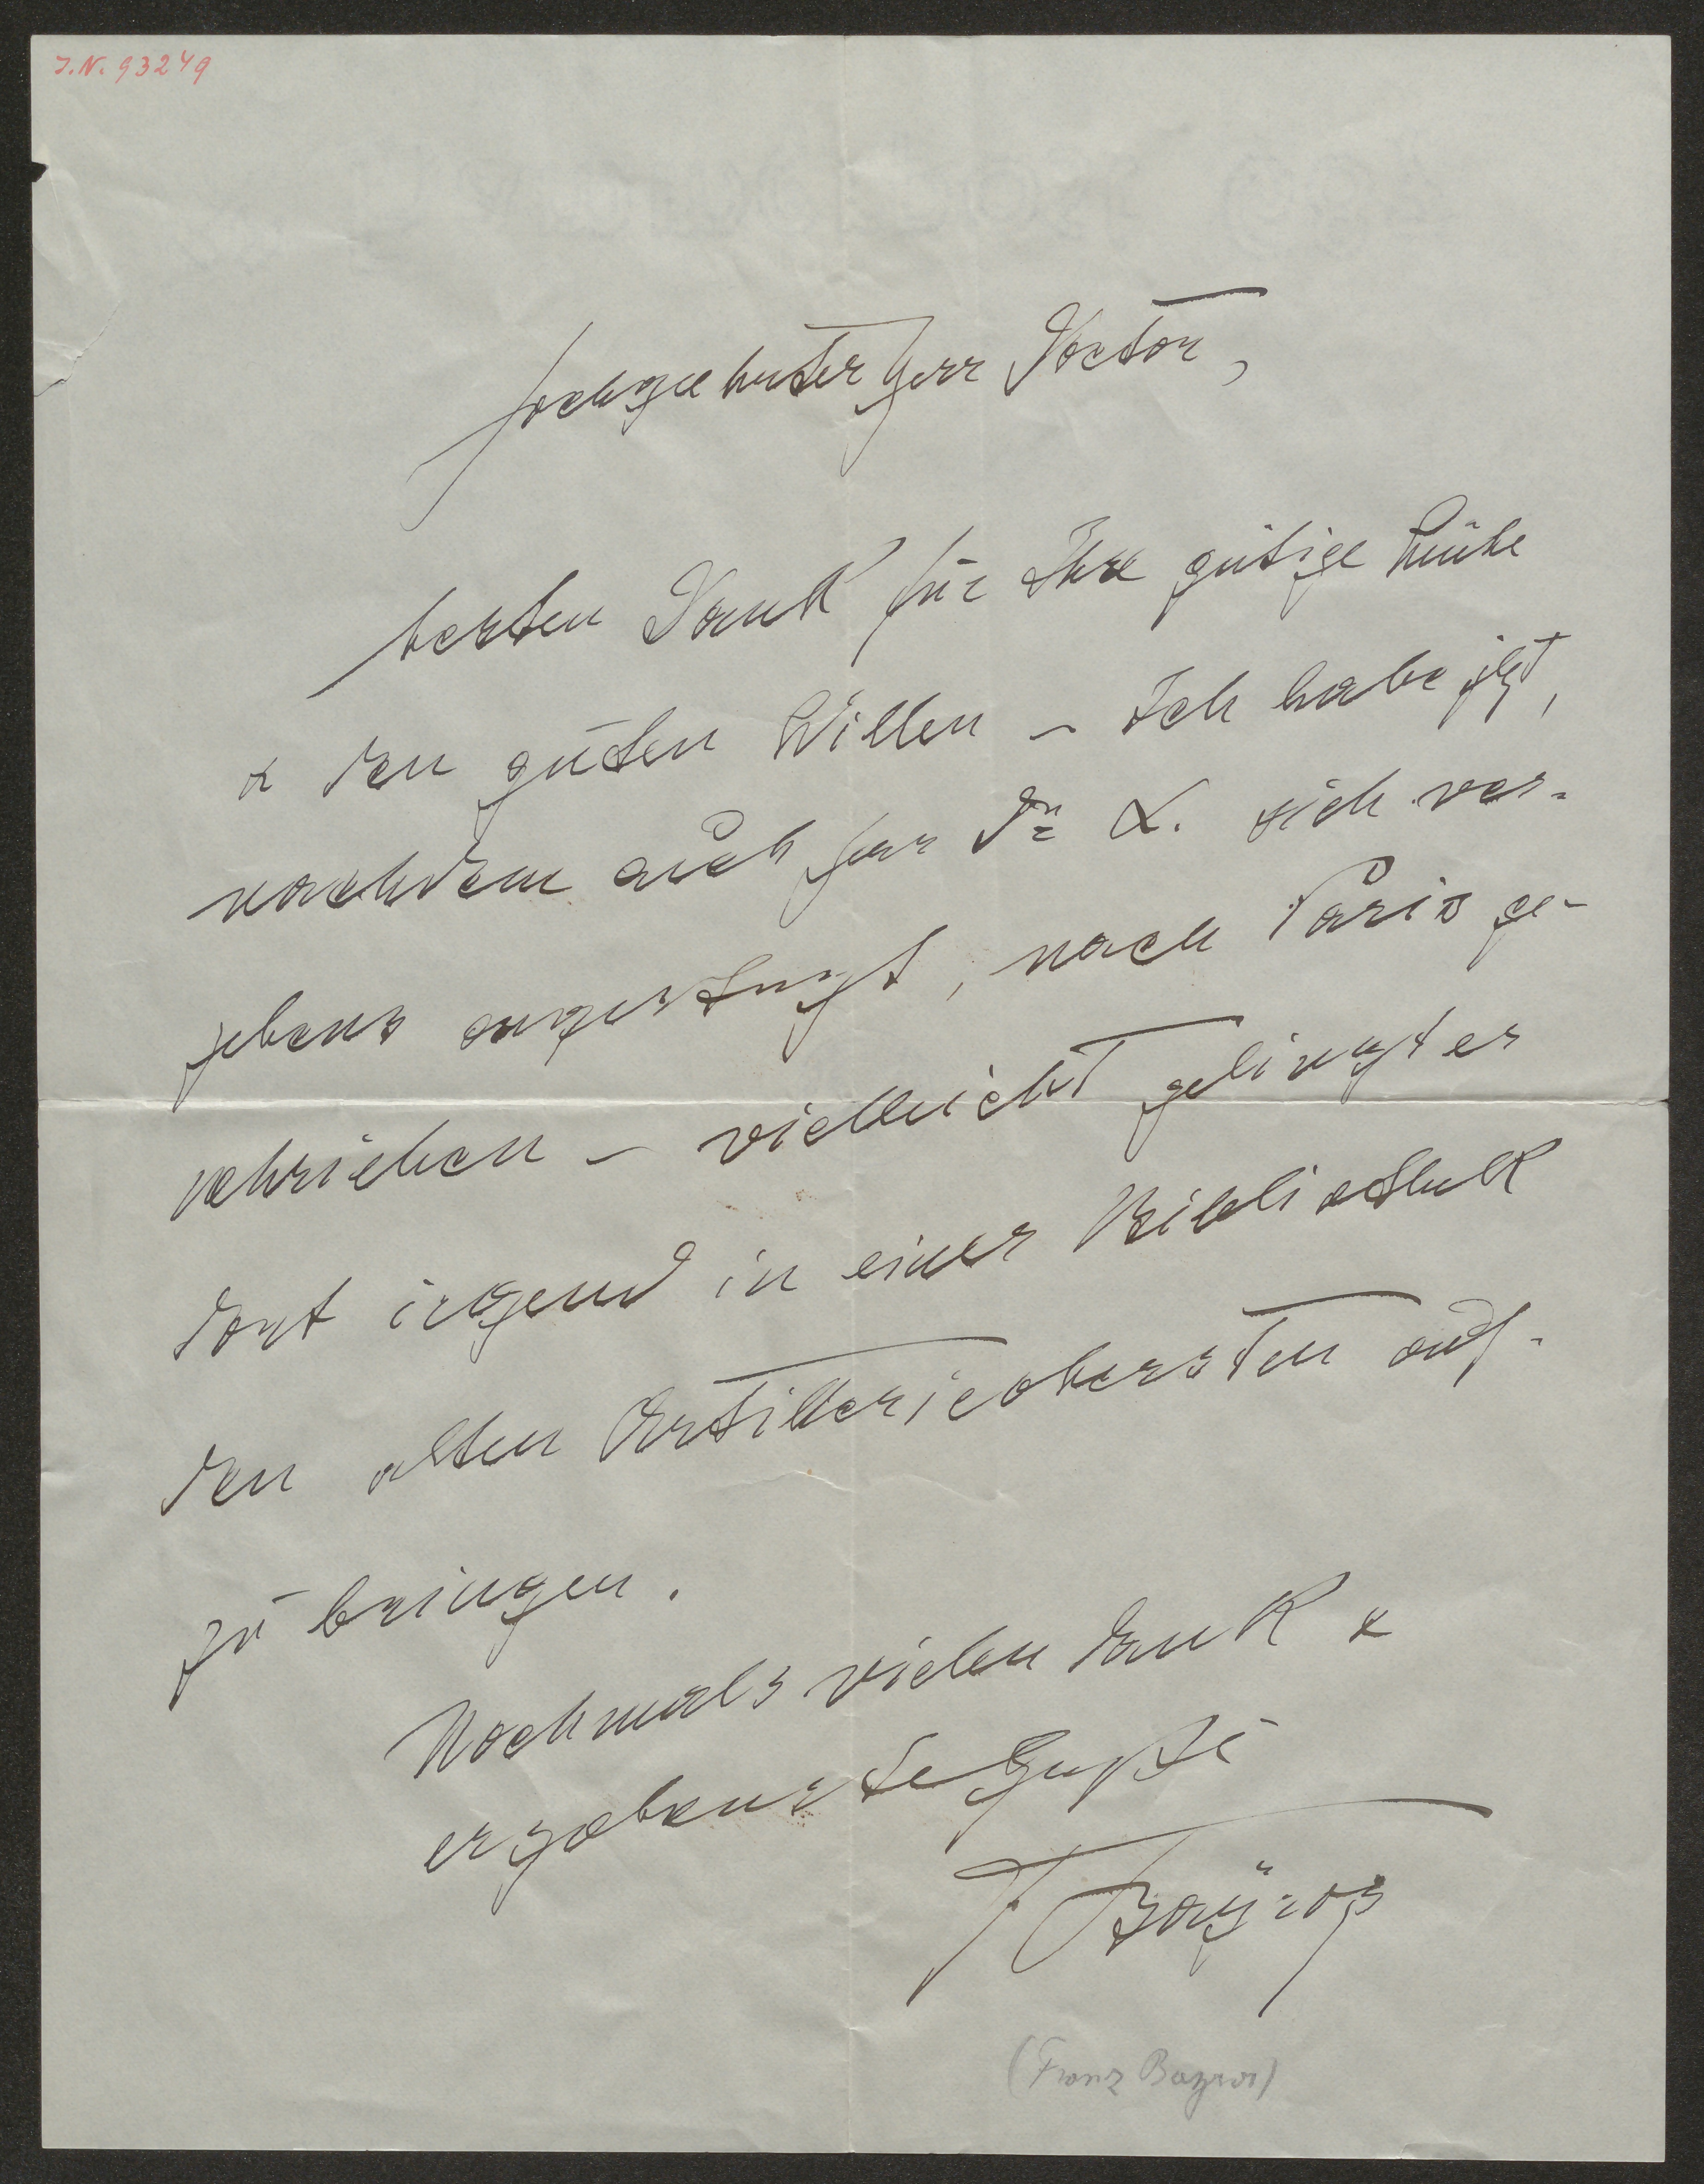 J.N. 93249
Hochgeehrter Herr Doctor,
besten Dank für Ihre gütige Mühe
& den guten Willen – Ich habe jetzt,
nachdem auch Herr Dr L. sich ver-
gebens angestrengt, nach Paris ge-
schrieben – vielleicht gelingt es
dort irgend in einer Bibliothek
den alten Artillerieobersten auf-
zu bringen.
Nochmals vielen Dank &
ergebenste Grüße
F Bayros
(Franz Bayros)